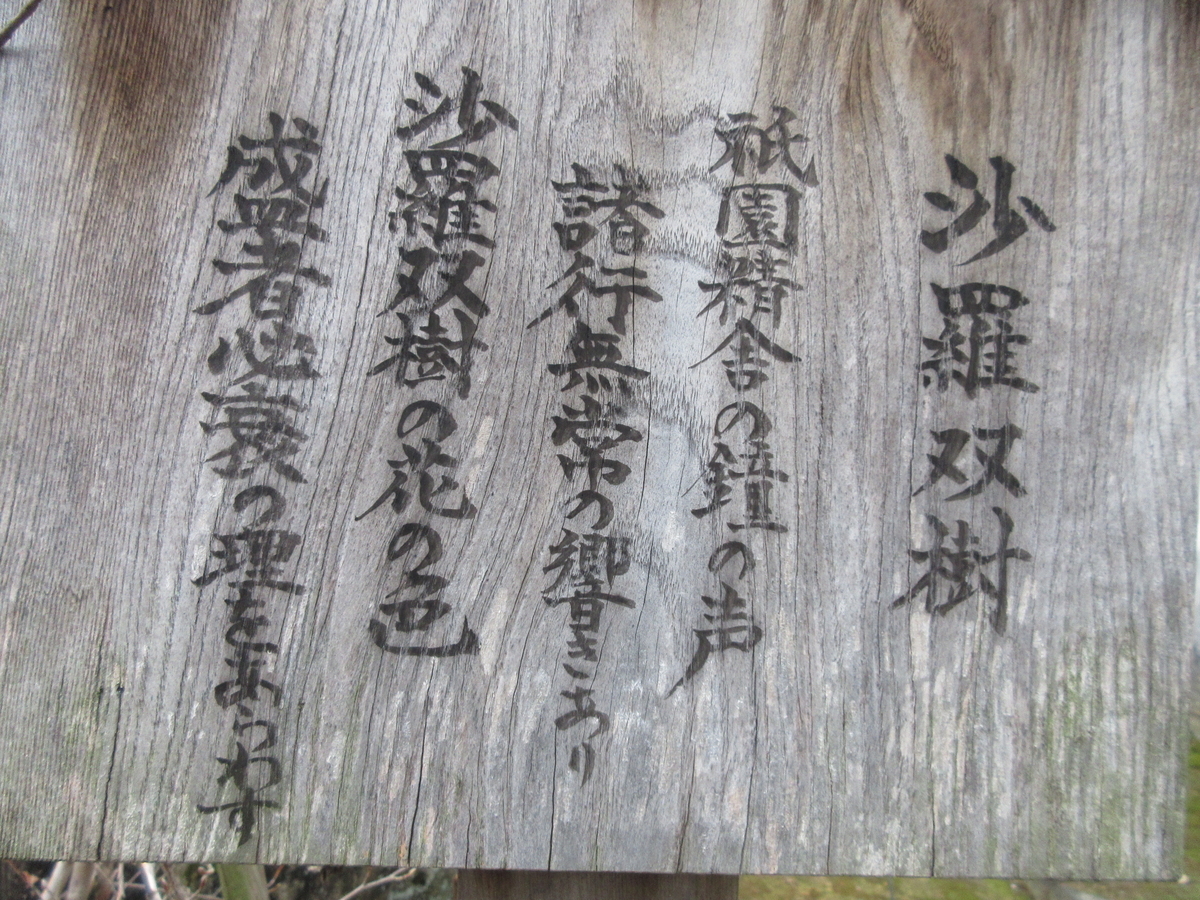 沙羅双樹
祇園精舎の鐘の声
諸行無常の響きあり
沙羅双樹の花の色
成者必衰の理をあらわす